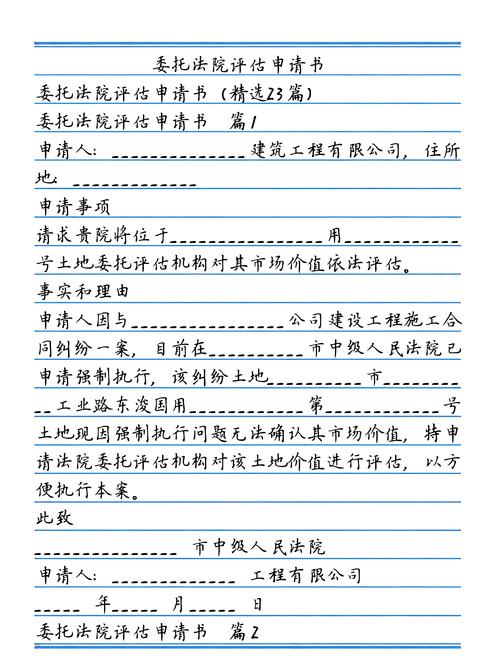 委托法院评估申请书
委托法院评估申请书（精选23篇）
委托法院评估申请书　篇1
申请人：______________建筑工程有限公司，住所
地：_____________
申请事项
请求贵院将位于________________用____________
号土地委托评估机构对其市场价值依法评估。
事实和理由
申请人因与________________公司建设工程施工合
同纠纷一案，目前在__________市中级人民法院已
申请强制执行，该纠纷土地__________市________
__工业路东浚国用____________第____________号
土地现因强制执行问题无法确认其市场价值，特申
请法院委托评估机构对该土地价值进行评估，以方
便执行本案。
此致
_______________ 市中级人民法院
申请人：_____________ 工程有限公司
_____ 年_____ 月_____ 日
委托法院评估申请书　篇2